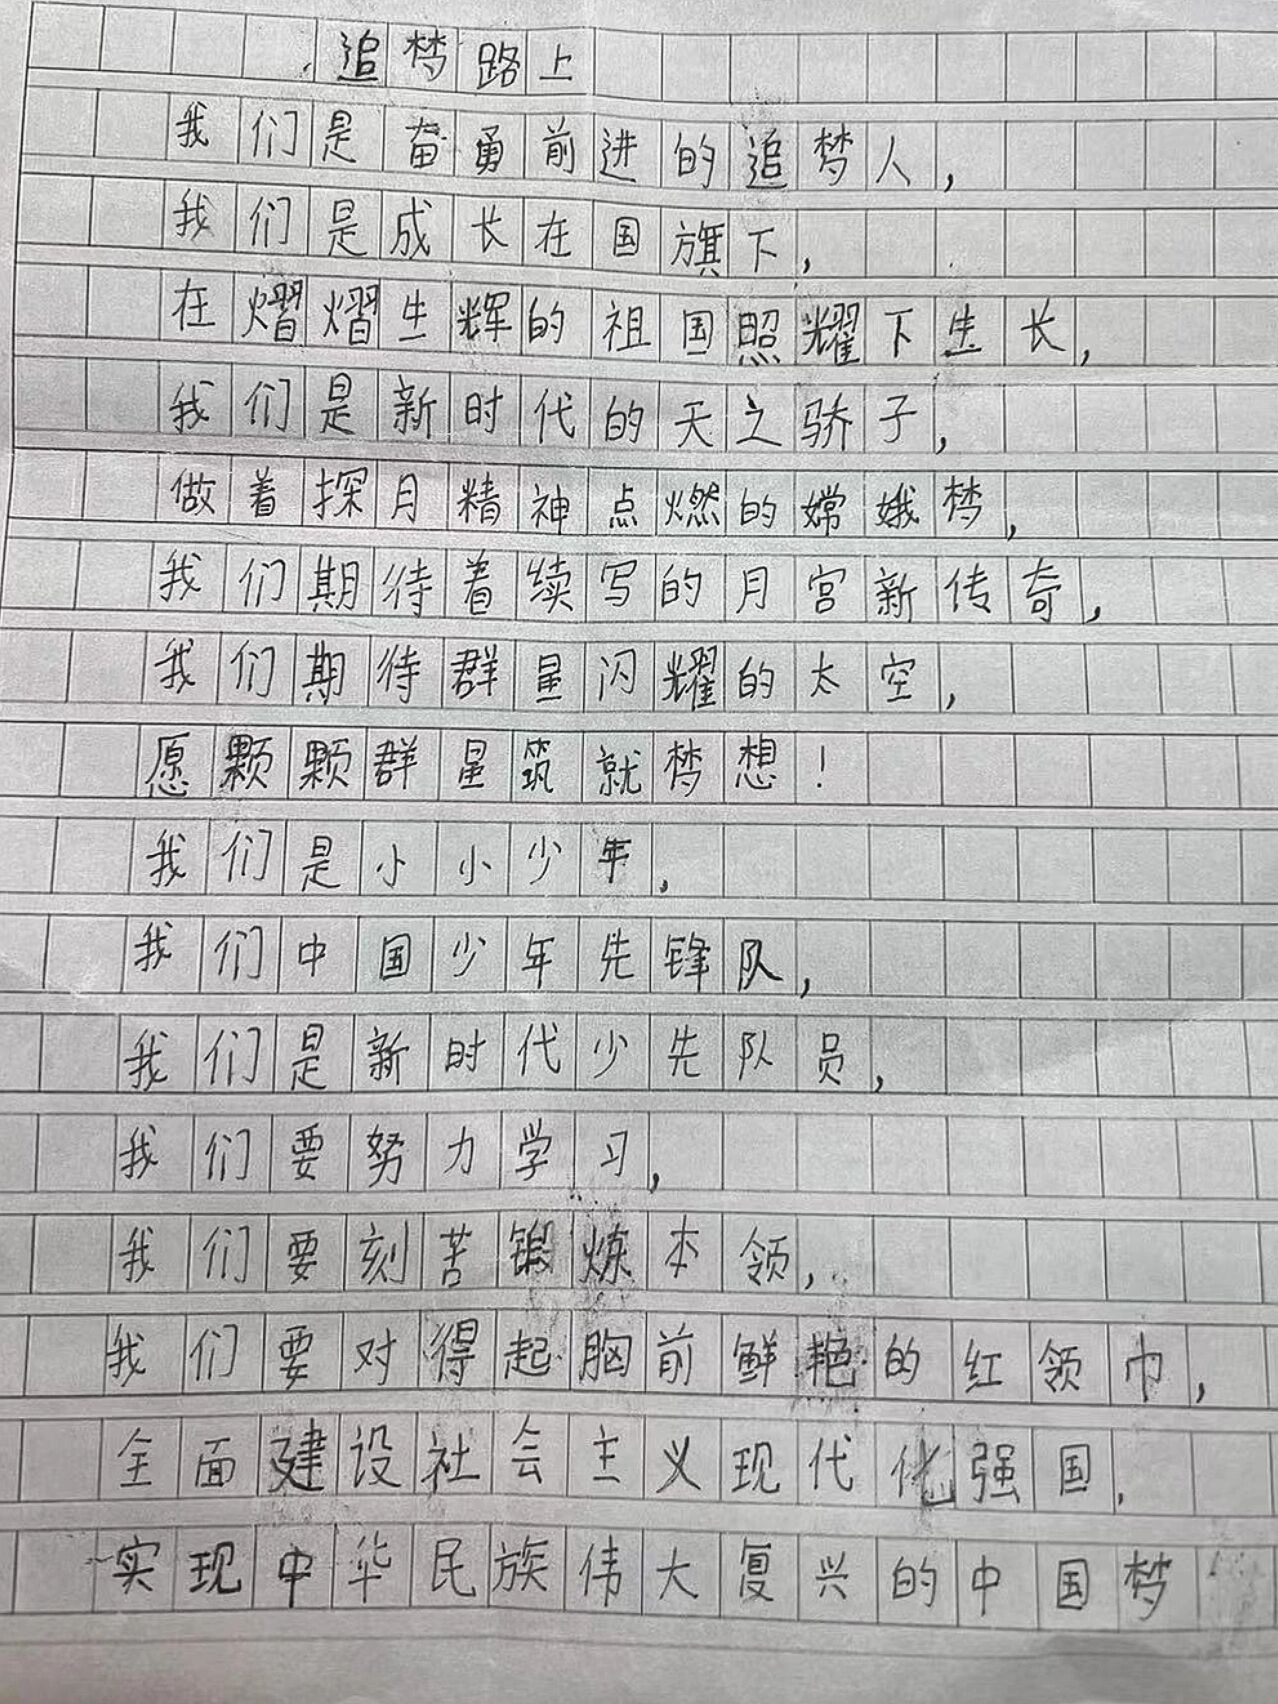 追梦路上
我们是奋勇前进的追梦人,
我们是成长在国旗下,
在熠熠生辉的祖国照耀下生长,
我们是新时代的天之骄子,
做着探月精神点燃的嫦娥梦,
我们期待着续写的月宫新传奇,
我们期待群星闪耀的太空,
愿颗颗群星筑就梦想!
我们是小小少年,
我们中国少年先锋队,
我们是新时代少先队员,
我们要努力学习,
我们要刻苦锻炼本领,
我们要对得起胸前鲜艳的红领巾,
全面建设社会主义现代化强国,
实现中华民族伟大复兴的中国梦